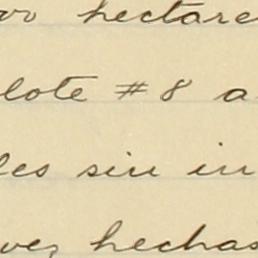 hectare
lote #8 a
les sin in
vez hechas